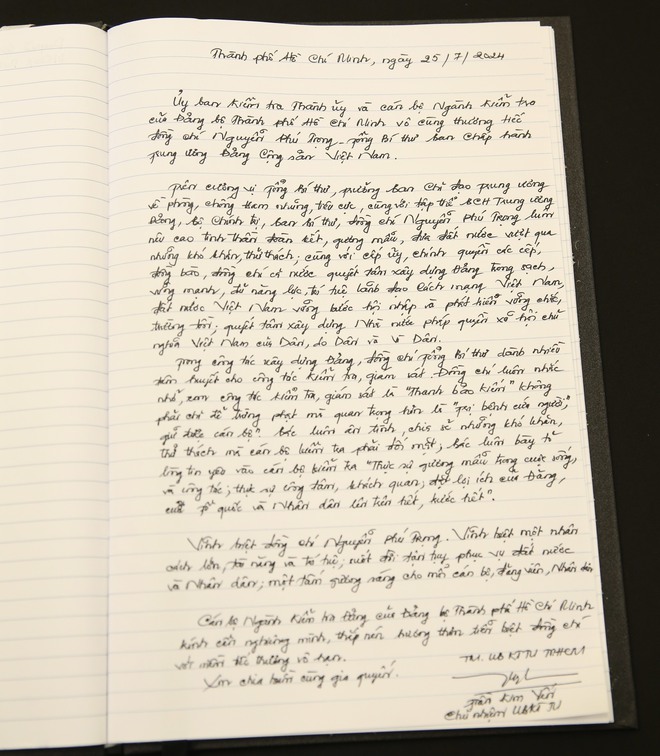 Thành phố Hồ Chí Minh, ngày 25/7/2024
Ủy ban Kiểm tra Thành ủy và cán bộ Ngành Kiểm tra
của Đảng bộ Thành phố Hồ Chí Minh vô cùng thương tiếc
đồng chí Nguyễn Phú Trọng - Tổng Bí thư Ban Chấp hành
Trung ương Đảng Cộng sản Việt Nam.
Trên cương vị Tổng Bí thư, Trưởng ban Chỉ đạo Trung ương
về phòng, chống tham nhũng, tiêu cực, cùng với tập thể BCH Trung ương
Đảng, Bộ Chính trị, Ban Bí thư, đồng chí Nguyễn Phú Trọng luôn
nêu cao tinh thần đoàn kết, gương mẫu, đưa đất nước vượt qua
những khó khăn, thử thách; cùng với cấp ủy, chính quyền các cấp,
đồng bào, đồng chí cả nước quyết tâm xây dựng Đảng trong sạch,
vững mạnh, đủ năng lực, trí tuệ lãnh đạo Cách mạng Việt Nam,
đất nước Việt Nam vững bước hội nhập và phát triển vững chắc,
trường tồn; quyết tâm xây dựng Nhà nước pháp quyền xã hội chủ
nghĩa Việt Nam của Dân, do Dân và vì Dân.
Trong công tác xây dựng Đảng, đồng chí Tổng Bí thư dành nhiều
tâm huyết cho công tác kiểm tra, giám sát. Đồng chí luôn nhắc
nhở, xem công tác kiểm tra, giám sát là "Thanh bảo kiếm" không
phải chỉ để trừng phạt mà quan trọng hơn là "trị bệnh cứu người",
giữ được cán bộ". Bác luôn ân tình, chia sẻ những khó khăn,
thử thách mà cán bộ kiểm tra phải đối mặt; Bác luôn bày tỏ
lòng tin yêu vào cán bộ kiểm tra "Thực sự gương mẫu trong cuộc sống,
và công tác; thực sự công tâm, khách quan; đặt lợi ích của Đảng,
của Tổ quốc và Nhân dân lên trên hết, trước hết".
Vĩnh biệt đồng chí Nguyễn Phú Trọng. Vĩnh biệt một nhân
cách lớn, tài năng và trí tuệ; suốt đời tận tụy phục vụ đất nước
và Nhân dân; một tấm gương sáng cho mỗi cán bộ, đảng viên, Nhân dân
Cán bộ Ngành Kiểm tra Đảng của Đảng bộ Thành phố Hồ Chí Minh
kính cẩn nghiêng mình, thắp nén hương thơm tiễn biệt đồng chí
với niềm tiếc thương vô hạn.
Xin chia buồn cùng gia quyến.
TM. UBKTTU TPHCM
Trần Kim Yến
Chủ nhiệm UBKTTU